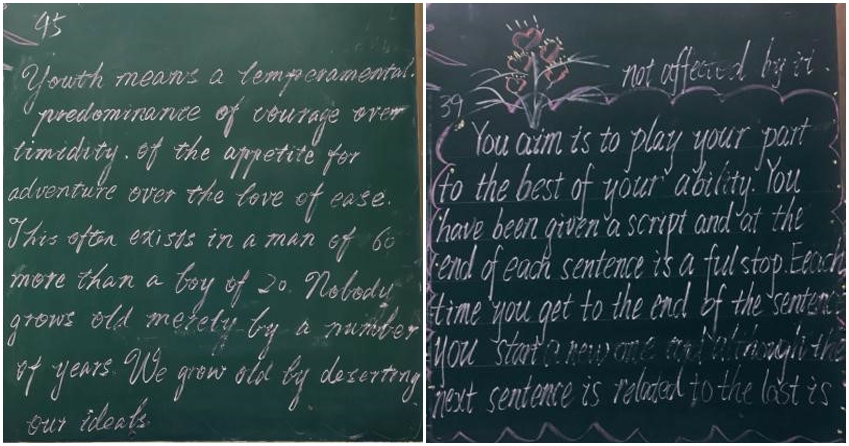 95
Youth means a temperamental.
predominance of courage over
timidity. of the appetite for
adventure over the love of ease.
This often exists in a man of 60
more than a boy of 20. Nobody
grows old merely by a number
of years. We grow old by deserting
our ideals.
not affected by it
39
You aim is to play your part
to the best of your ability. You
have been given a script and at the
end of each sentence is a ful stop. Eeach
time you get to the end of the sentence
you start a new one and although the
next sentence is related to the last is